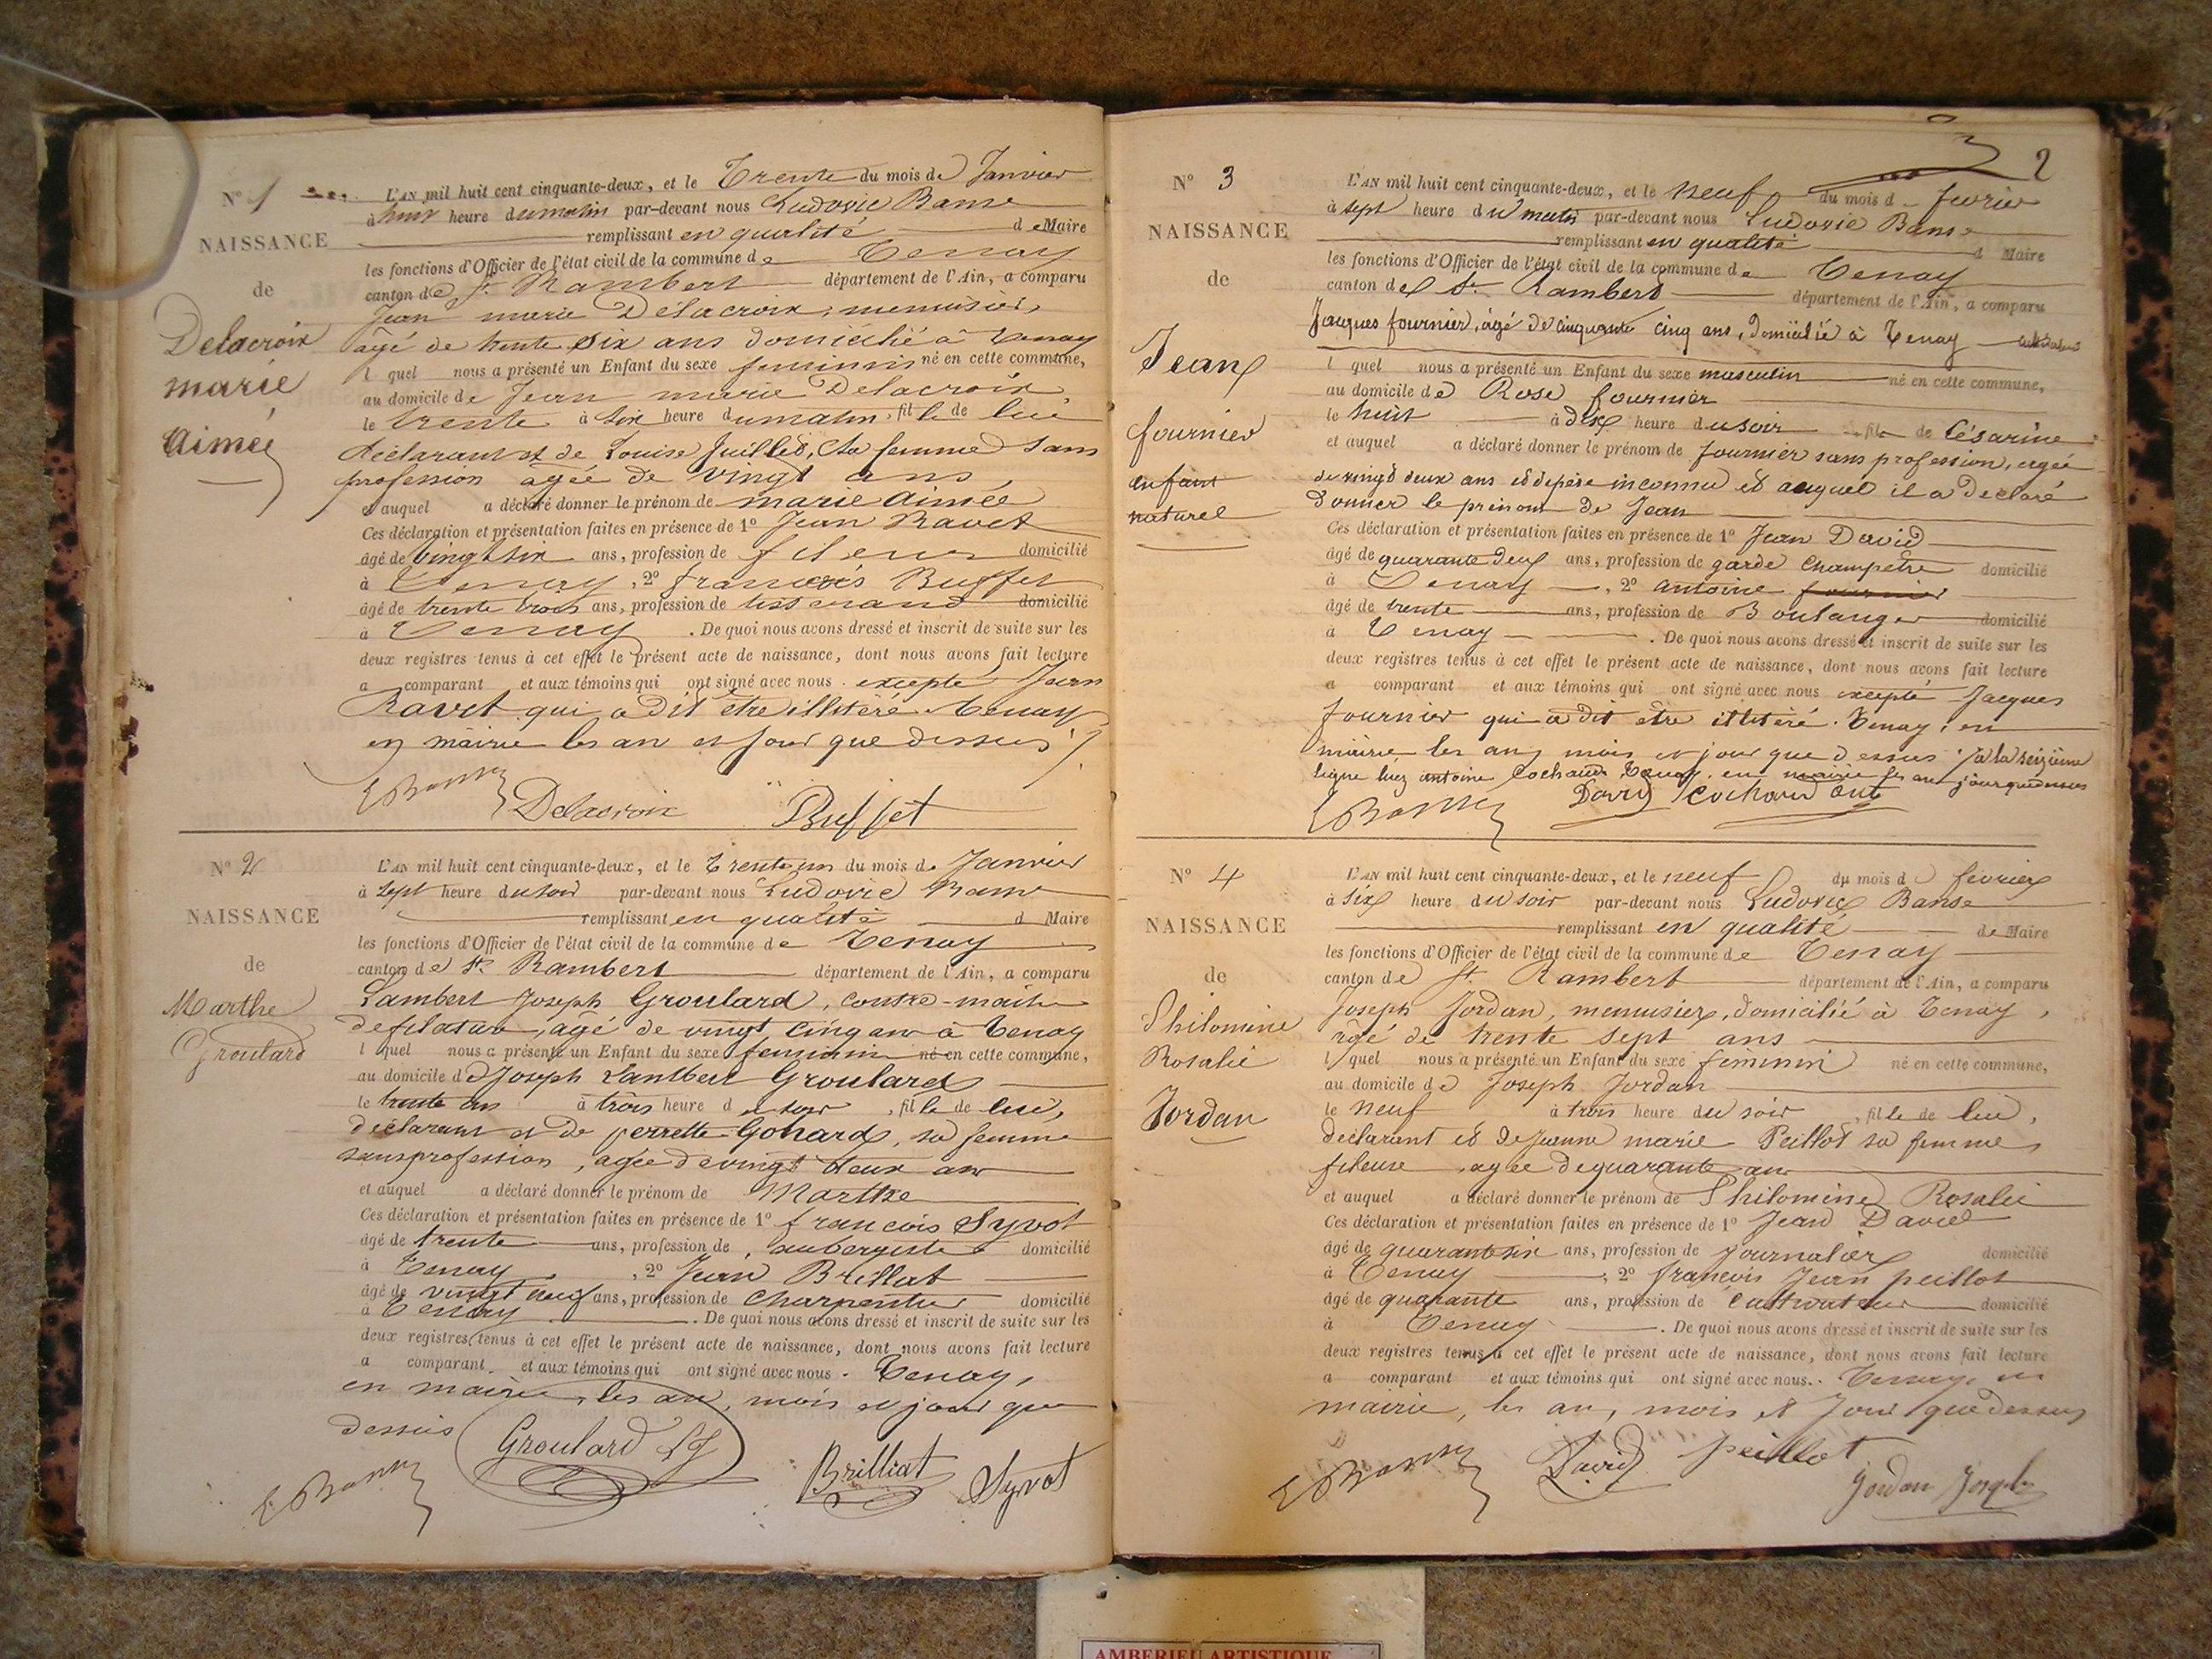 N° 1
NAISSANCE
de
Delacroix
marie
Aimée
L'AN mil huit cent cinquante-deux, et le Trente du mois de Janvier
à huit heure du matin par-devant nous Ludovic Banse
remplissant en qualité de Maire
les fonctions d'Officier de l'état civil de la commune de Tenay
canton de St Rambert département de l'Ain, a comparu
Jean marie Delacroix, menuisier,
âgé de trente six ans domicilié à Tenay
l quel nous a présenté un Enfant du sexe feminin né en cette commune,
au domicile de Jean marie Delacroix,
le trente à six heure du matin, fille de lui
déclarant et de Louise Juilled, sa femme sans
profession agée de vingt ans,
et auquel a déclaré donner le prénom de marie aimée
Ces déclaration et présentation faites en présence de 1° Jean Ravet
âgé de vingt six ans, profession de fileur domicilié
à Tenay, 2° francois Buffet
âgé de trente trois ans, profession de tisserand domicilié
à Tenay. De quoi nous avons dressé et inscrit de suite sur les
deux registres tenus à cet effet le présent acte de naissance, dont nous avons fait lecture
a comparant et aux témoins qui ont signé avec nous. excepté Jean
Ravet qui a dit être illitéré. Tenay
en mairie les an et jour que dessus
Delacroix Buffet
N° 2
NAISSANCE
de
Marthe
Groulard
L'AN mil huit cent cinquante-deux, et le Trente un du mois de Janvier
à sept heure du soir par-devant nous Ludovic Banse
remplissant en qualité d Maire
les fonctions d'Officier de l'état civil de la commune de Tenay
canton de St Rambert département de l'Ain, a comparu
Lambert Joseph Groulard, contre-maitre
de filature, âgé de vingt cinq ans à Tenay
l quel nous a présenté un Enfant du sexe feminin né en cette commune,
au domicile de Joseph Lambert Groulard
le trente un à trois heure du soir, fille de lui,
déclarant et de perrette Gohard, sa femme
sans profession, agée de vingt deux ans
et auquel a déclaré donner le prénom de Marthe
Ces déclaration et présentation faites en présence de 1° francois Syvot
âgé de trente ans, profession de, aubergiste domicilié
à Tenay, 2° Jean Brillat
âgé de vingt neuf ans, profession de Charpentier domicilié
à Tenay. De quoi nous avons dressé et inscrit de suite sur les
deux registres tenus à cet effet le présent acte de naissance, dont nous avons fait lecture
a comparant et aux témoins qui ont signé avec nous. Tenay,
en mairie, les an, mois et jour que
dessus Groulard LJ
Brilliat Syvot
2
N° 3
NAISSANCE
de
Jean
fournier
enfant
naturel
L'AN mil huit cent cinquante-deux, et le neuf du mois d fevrier
à sept heure du matin par-devant nous Ludovic Banse
remplissant en qualité d Maire
les fonctions d'Officier de l'état civil de la commune de Tenay
canton de St Rambert département de l'Ain, a comparu
Jacques fournier, âgé de cinquante cinq ans, domicilié à Tenay
l quel nous a présenté un Enfant du sexe masculin né en cette commune,
au domicile de Rose fournier
le huit à dix heure du soir fils de Césarine
et auquel a déclaré donner le prénom de fournier sans profession, agée
de vingt deux ans et de père inconnu et auquel il a declaré
donner le prénom de Jean
Ces déclaration et présentation faites en présence de 1° Jean David
âgé de quarante deux ans, profession de garde Champêtre domicilié
à Tenay, 2° antoine fournier
âgé de trente ans, profession de Boulanger domicilié
à Tenay. De quoi nous avons dressé et inscrit de suite sur les
deux registres tenus à cet effet le présent acte de naissance, dont nous avons fait lecture
a comparant et aux témoins qui ont signé avec nous excepté Jacques
fournier qui a dit être illitéré. Tenay, en
mairie les an, mois et jour que dessus à la seizième
ligne lisez antoine Cochaud Tenay, en mairie les an jour que dessus
David Cochaud
N° 4
NAISSANCE
de
Philomine
Rosalie
Jordan
L'AN mil huit cent cinquante-deux, et le neuf du mois d fevrier
à six heure du soir par-devant nous Ludovic Banse
remplissant en qualité de Maire
les fonctions d'Officier de l'état civil de la commune de Tenay
canton de St Rambert département de l'Ain, a comparu
Joseph Jordan, menuisier, domicilié à Tenay,
âgé de trente sept ans
l quel nous a présenté un Enfant du sexe feminin né en cette commune,
au domicile de Joseph Jordan
le neuf à trois heure du soir, fille de lui,
déclarant et de Jeanne marie Peillot sa femme,
fileuse, agée de quarante ans
et auquel a déclaré donner le prénom de Philomine Rosalie
Ces déclaration et présentation faites en présence de 1° Jean David
âgé de quarante six ans, profession de journalier domicilié
à Tenay, 2° francois Jean peillot
âgé de quarante ans, profession de Cultivateur domicilié
à Tenay. De quoi nous avons dressé et inscrit de suite sur les
deux registres tenus à cet effet le présent acte de naissance, dont nous avons fait lecture
a comparant et aux témoins qui ont signé avec nous. Tenay, en
mairie, les an, mois et Jour que dessus
David peillot
Jordan Joseph
AMBERIEU ARTISTIQUE